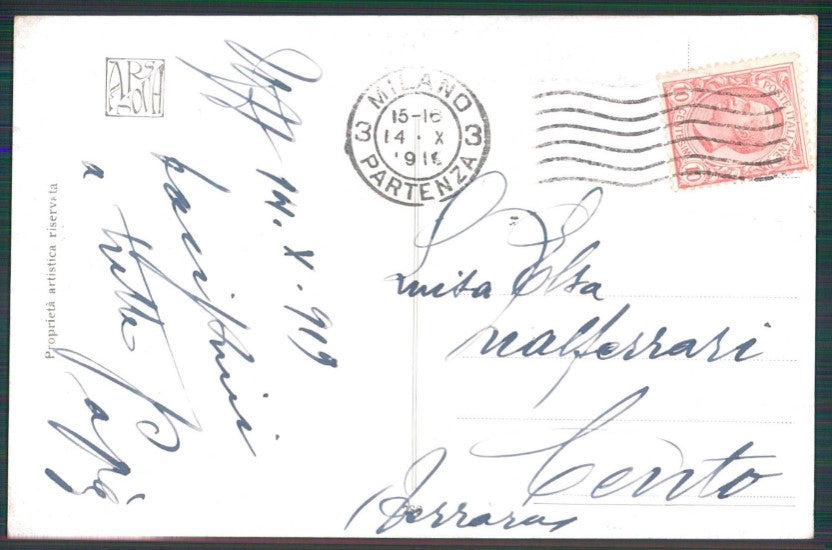 ARS
NOVA
Proprietà artistica riservata
14. X. 919
bacissimi
a tutte
Papà
MILANO
15-16
14 · X
191
3 3
PARTENZA
POSTE ITALIANE
Luisa Elsa
Malferrari
Cento
(Ferrara)